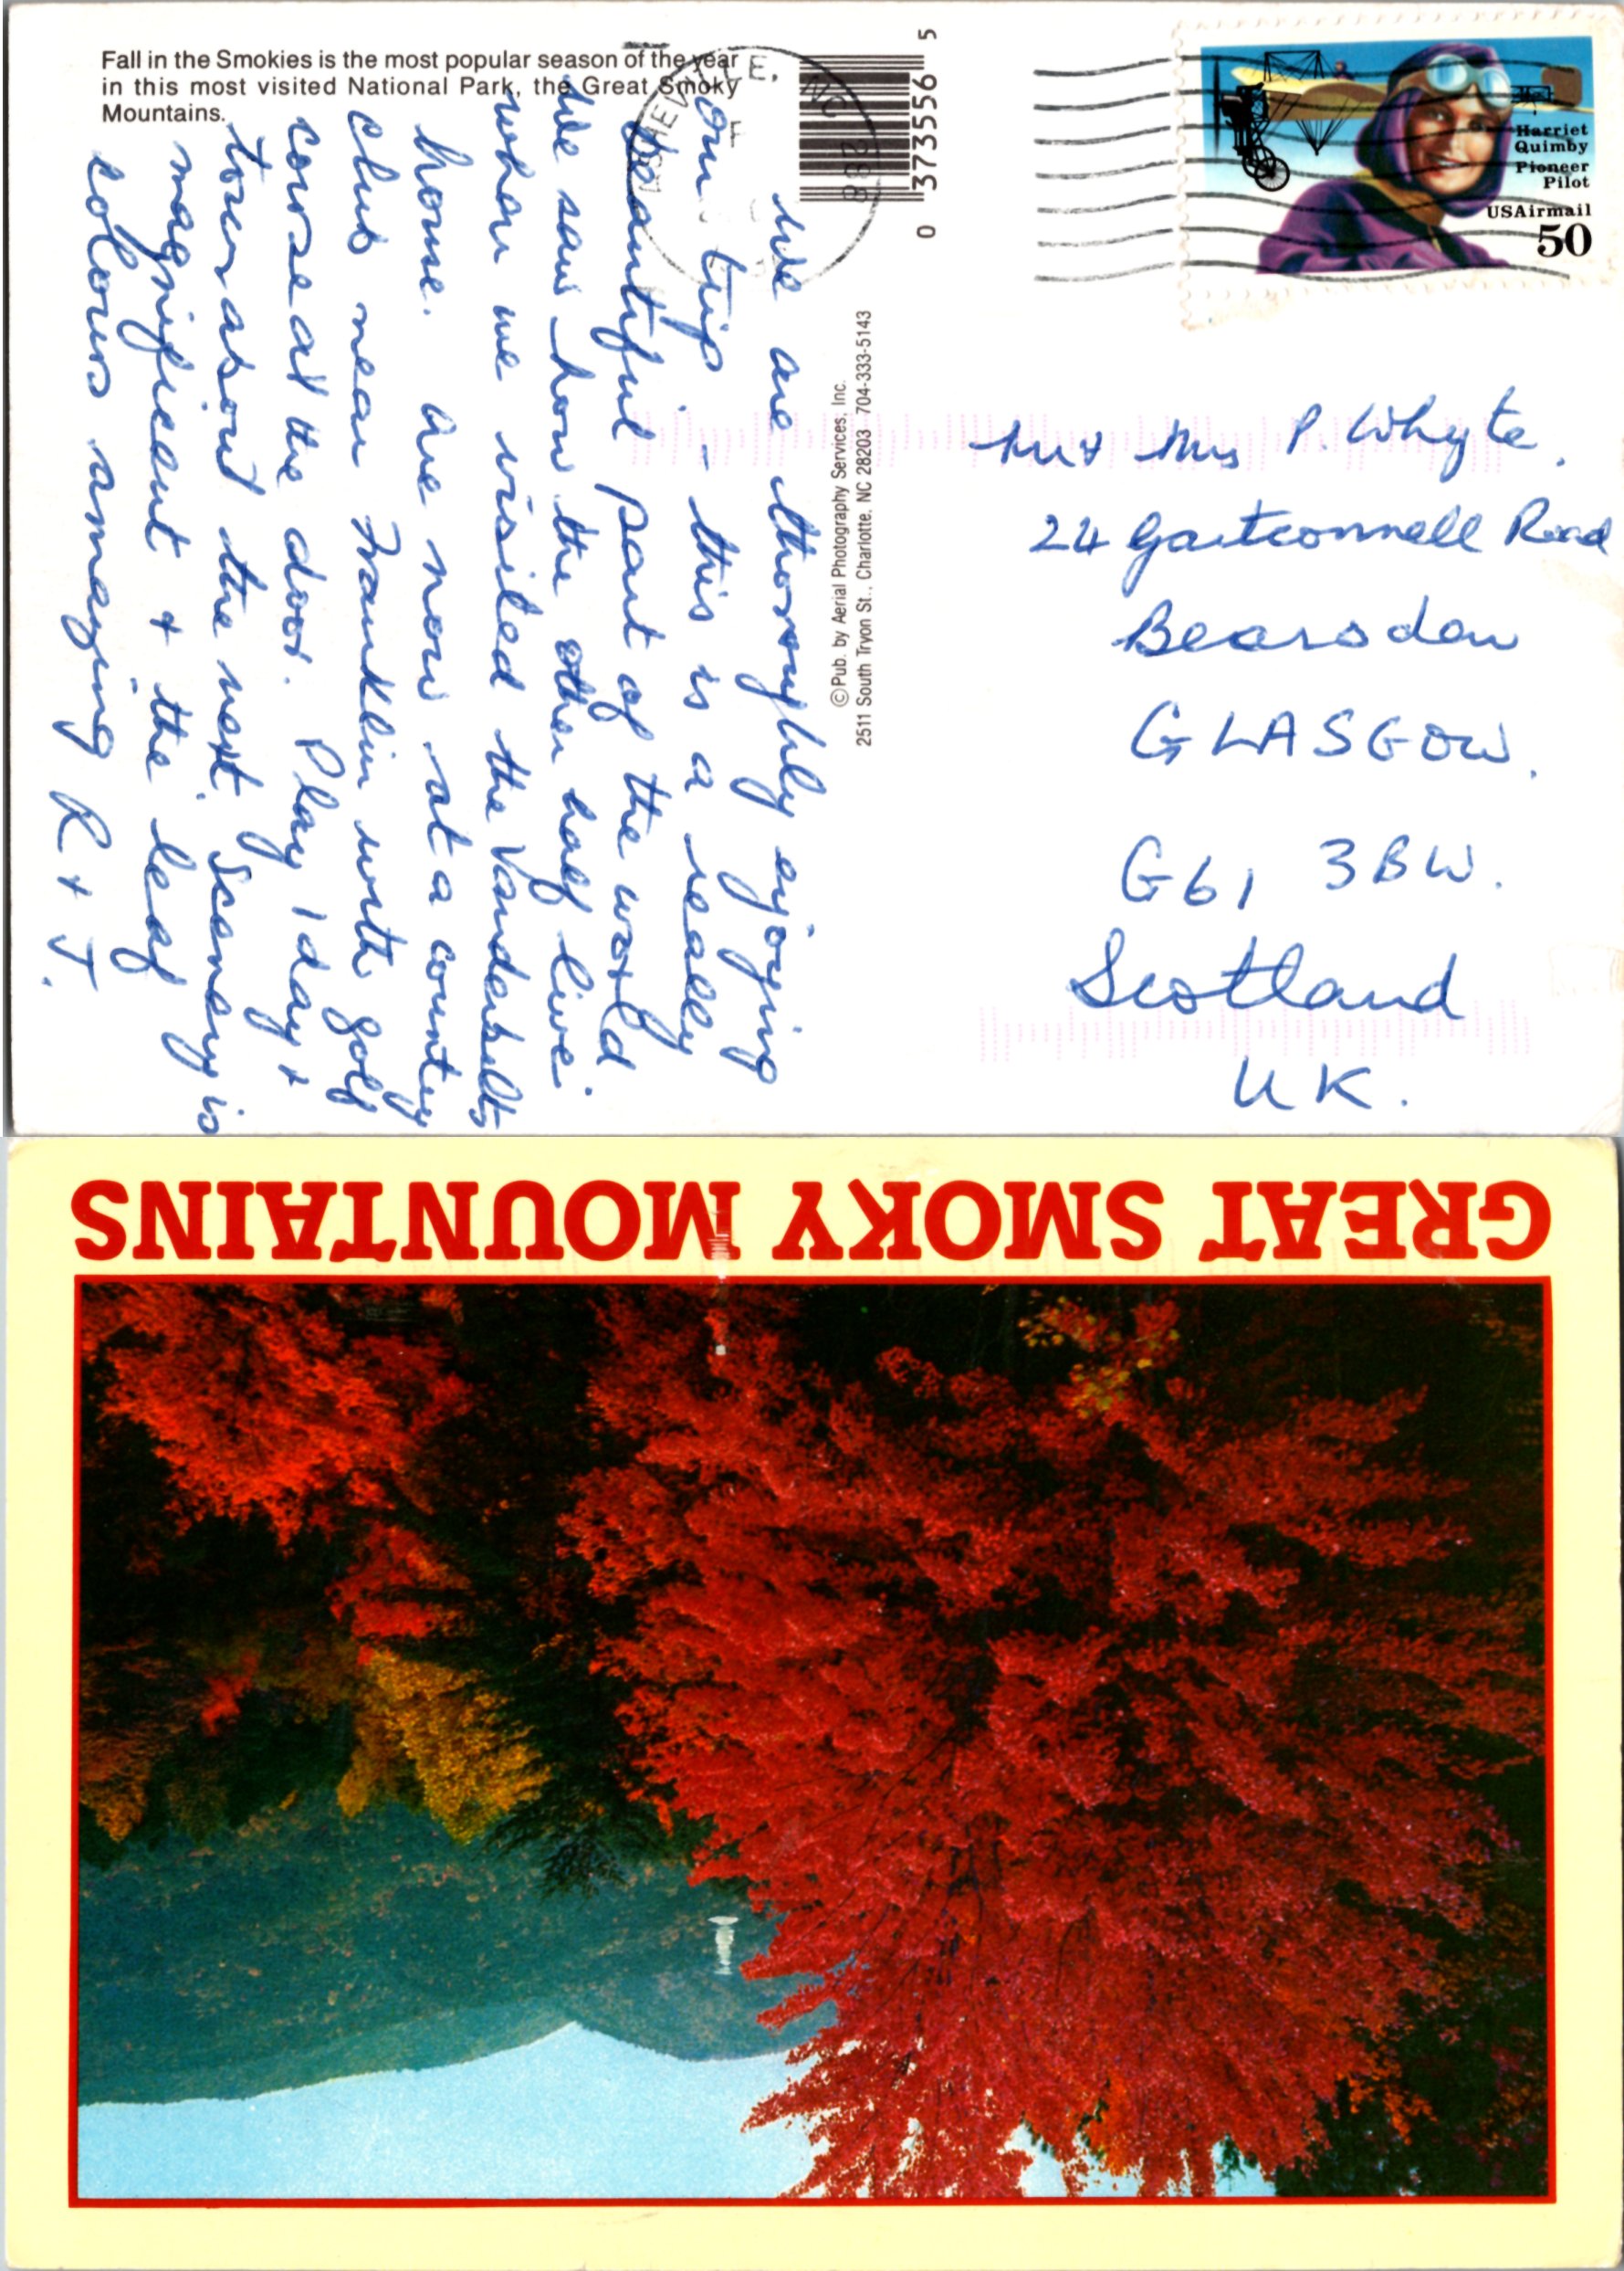 Fall in the Smokies is the most popular season of the year
in this most visited National Park, the Great Smoky
Mountains.
We are thoroughly enjoying
our trip - this is a really
beautiful part of the world
We saw how the other half live
when we visited the Vanderbilts
home. Are now at a country
club near Franklin with golf
course at the door. Play 1 day +
tour about the next. Scenery is
magnificent + the leaf
colours amazing R + J.
©Pub. by Aerial Photography Services, Inc.
2511 South Tryon St., Charlotte, NC 28203 704-333-5143
0 373556 5
NC
Harriet
Quimby
Pioneer
Pilot
USAirmail
50
Mr + Mrs P. Whyte.
24 Gartconnell Road
Bearsden
GLASGOW.
G61 3BW.
Scotland
UK.
GREAT SMOKY MOUNTAINS